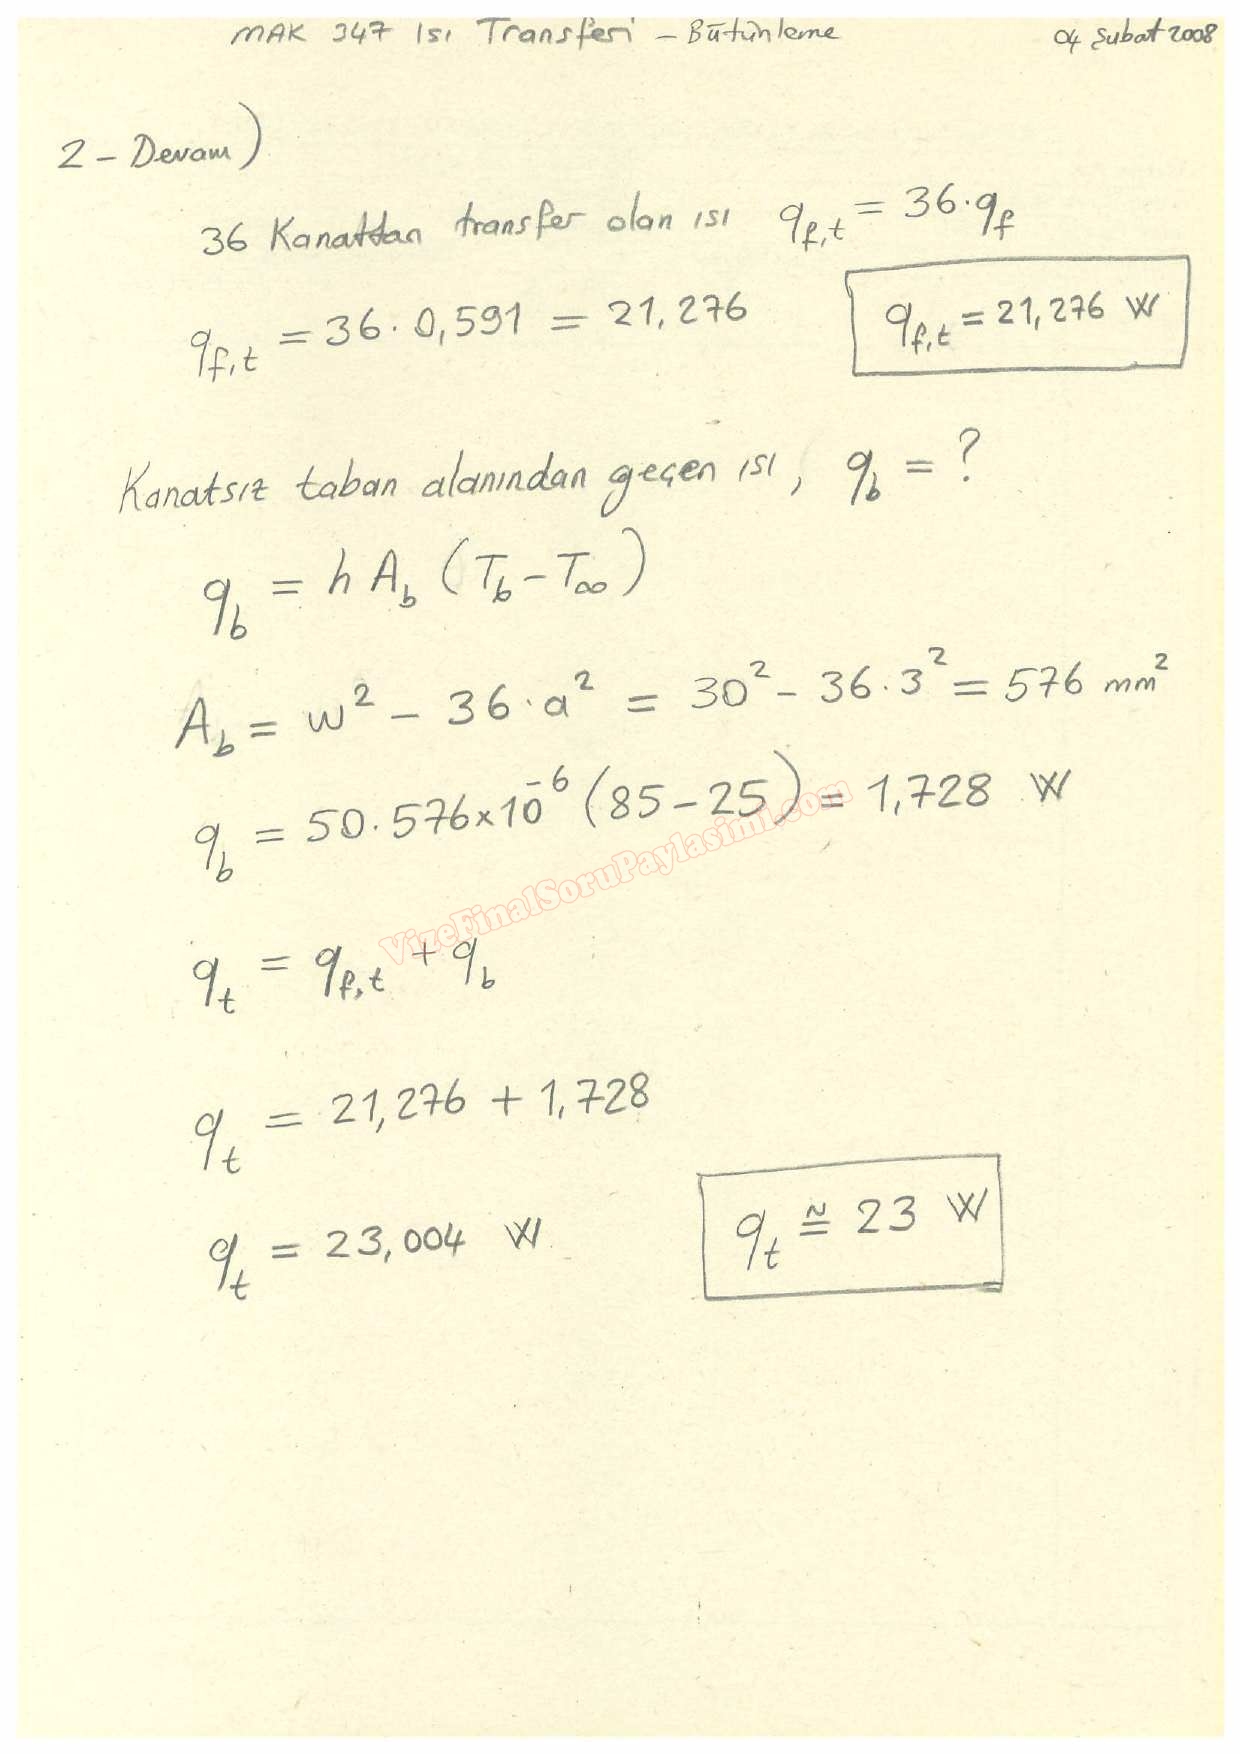 MAK 347 Isı Transferi – Bütünleme 04 Şubat 2008
2 – Devam)
36 Kanattan transfer olan ısı q_f,t = 36·q_f
q_f,t = 36·0,591 = 21,276
q_f,t = 21,276 W
Kanatsız taban alanından geçen ısı, q_b = ?
q_b = h A_b (T_b – T_∞)
A_b = w² – 36·a² = 30² – 36·3² = 576 mm²
q_b = 50·576×10⁻⁶ (85–25) = 1,728 W
VizeFinalSoruPaylasimi.com
q_t = q_f,t + q_b
q_t = 21,276 + 1,728
q_t = 23,004 W
q_t ≅ 23 W